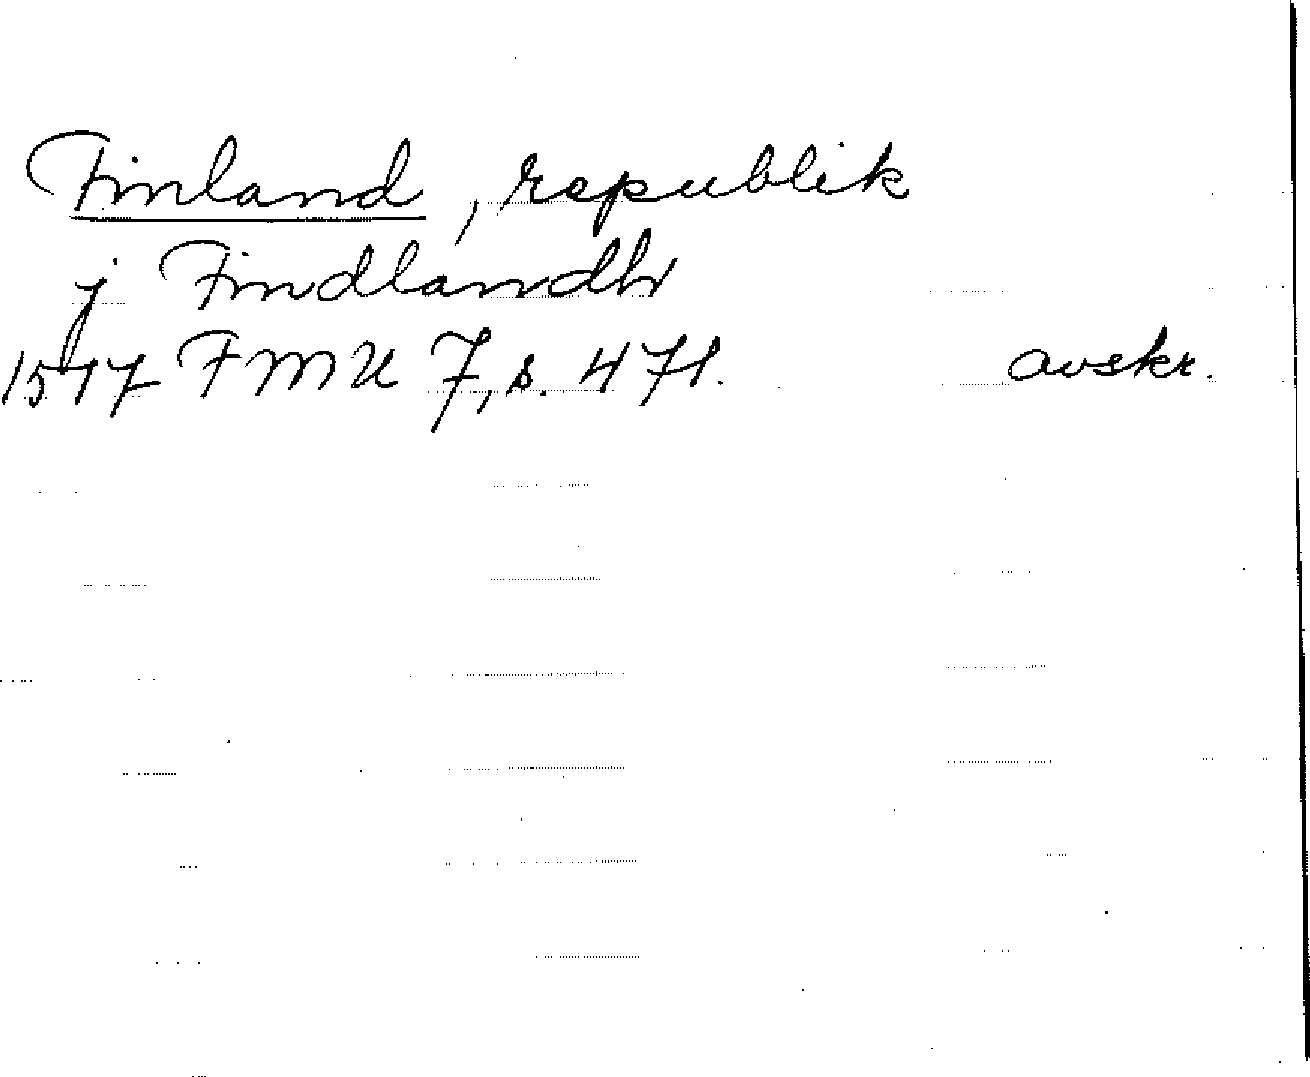 Finland, republik
j Findlandh
1517 FMU 7, s. 471. avskr.